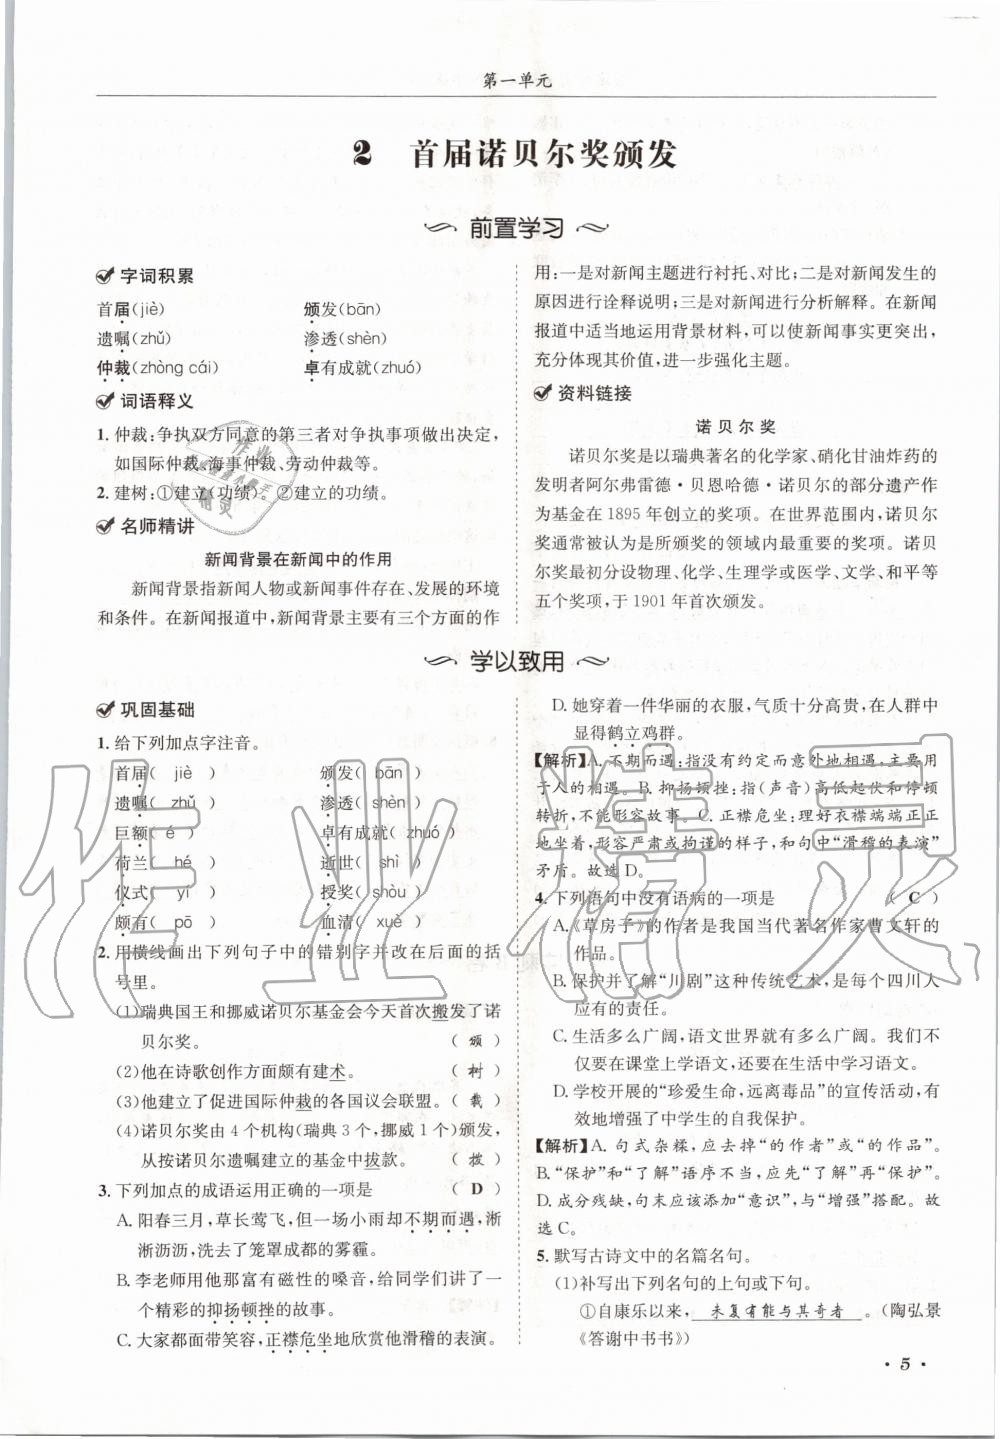 第一单元
2 首届诺贝尔奖颁发
前置学习
字词积累
首届(jiè) 颁发(bān)
遗嘱(zhǔ) 渗透(shèn)
仲裁(zhòng cái) 卓有成就(zhuó)
词语释义
1. 仲裁:争执双方同意的第三者对争执事项做出决定,
如国际仲裁、海事仲裁、劳动仲裁等。
2. 建树:①建立(功绩)。②建立的功绩。
名师精讲
新闻背景在新闻中的作用
新闻背景指新闻人物或新闻事件存在、发展的环境
和条件。在新闻报道中,新闻背景主要有三个方面的作
用:一是对新闻主题进行衬托、对比;二是对新闻发生的
原因进行诠释说明;三是对新闻进行分析解释。在新闻
报道中适当地运用背景材料,可以使新闻事实更突出,
充分体现其价值,进一步强化主题。
资料链接
诺贝尔奖
诺贝尔奖是以瑞典著名的化学家、硝化甘油炸药的
发明者阿尔弗雷德·贝恩哈德·诺贝尔的部分遗产作
为基金在1895年创立的奖项。在世界范围内,诺贝尔
奖通常被认为是所颁奖的领域内最重要的奖项。诺贝
尔奖最初分设物理、化学、生理学或医学、文学、和平等
五个奖项,于1901年首次颁发。
学以致用
巩固基础
1. 给下列加点字注音。
首届( jiè ) 颁发( bān )
遗嘱( zhǔ ) 渗透( shèn )
巨额( é ) 卓有成就( zhuó )
荷兰( hé ) 逝世( shì )
仪式( yí ) 授奖( shòu )
颇有( pō ) 血清( xuè )
2. 用横线画出下列句子中的错别字并改在后面的括
号里。
(1)瑞典国王和挪威诺贝尔基金会今天首次搬发了诺
贝尔奖。 ( 颁 )
(2)他在诗歌创作方面颇有建术。 ( 树 )
(3)他建立了促进国际仲裁的各国议会联盟。 ( 裁 )
(4)诺贝尔奖由4个机构(瑞典3个,挪威1个)颁发,
从按诺贝尔遗嘱建立的基金中拔款。 ( 拨 )
3. 下列加点的成语运用正确的一项是 ( D )
A. 阳春三月,草长莺飞,但一场小雨却不期而遇,淅
淅沥沥,洗去了笼罩成都的雾霾。
B. 李老师用他那富有磁性的嗓音,给同学们讲了一
个精彩的抑扬顿挫的故事。
C. 大家都面带笑容,正襟危坐地欣赏他滑稽的表演。
D. 她穿着一件华丽的衣服,气质十分高贵,在人群中
显得鹤立鸡群。
【解析】A. 不期而遇:指没有约定而意外地相遇,主要用
于人的相遇。B. 抑扬顿挫:指(声音)高低起伏和停顿
转折,不能形容故事。C. 正襟危坐:理好衣襟端端正正
地坐着,形容严肃或拘谨的样子,和句中“滑稽的表演”
矛盾。故选D。
4. 下列语句中没有语病的一项是 ( C )
A.《草房子》的作者是我国当代著名作家曹文轩的
作品。
B. 保护并了解“川剧”这种传统艺术,是每个四川人
应有的责任。
C. 生活多么广阔,语文世界就有多么广阔。我们不
仅要在课堂上学语文,还要在生活中学习语文。
D. 学校开展的“珍爱生命,远离毒品”的宣传活动,有
效地增强了中学生的自我保护。
【解析】A. 句式杂糅,应去掉“的作者”或“的作品”。
B.“保护”和“了解”语序不当,应先“了解”再“保护”。
D. 成分残缺,句末应该添加“意识”,与“增强”搭配。故
选C。
5. 默写古诗文中的名篇名句。
(1)补写出下列名句的上句或下句。
①自康乐以来, 未复有能与其奇者 。(陶弘景
《答谢中书书》)
· 5 ·
作业精灵